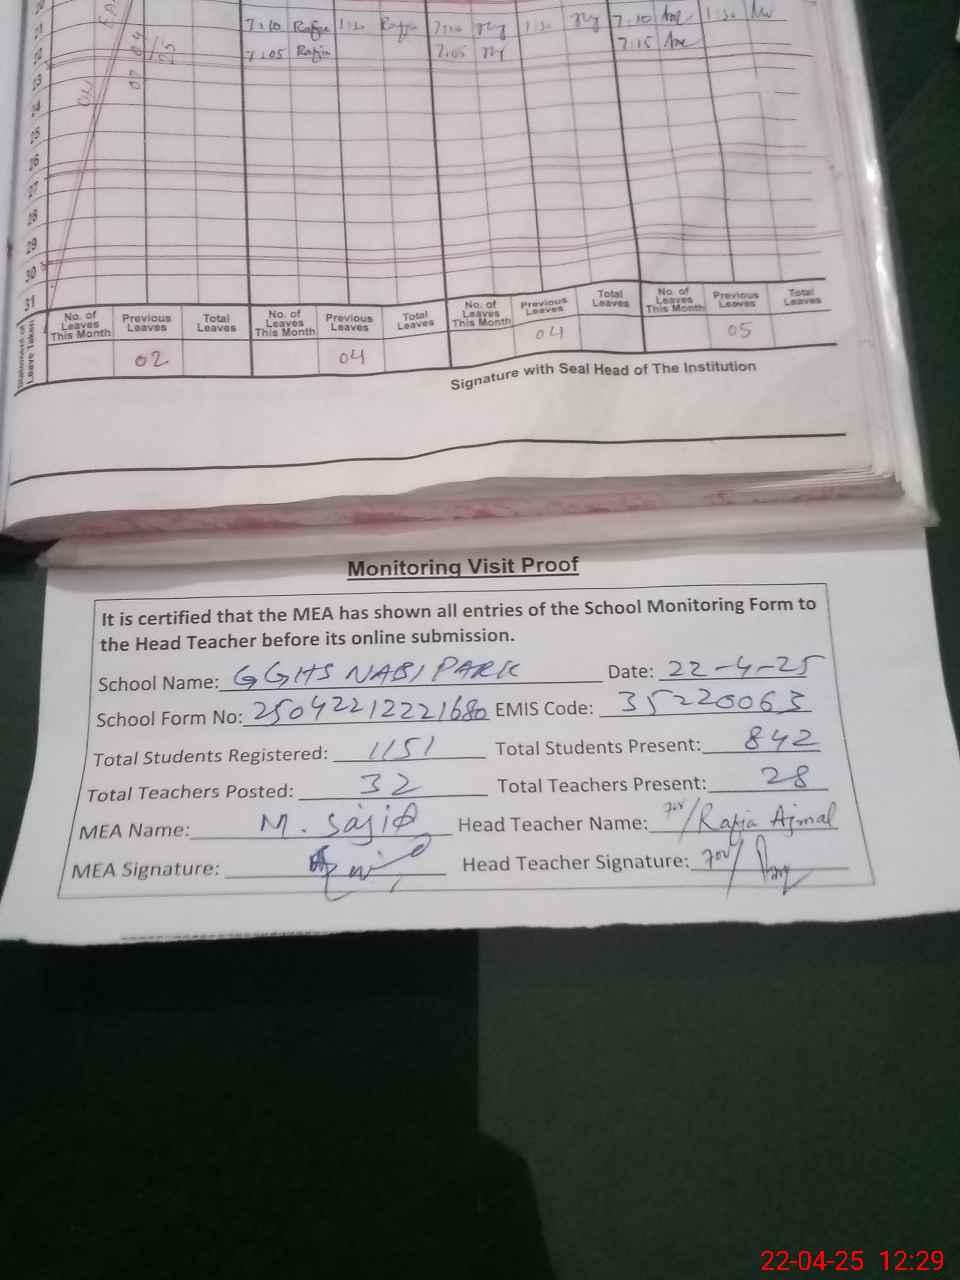 21 7:10 Rafia 1:30 Rafia 7:10 1:30 7:10 1:30
22 7:05 Rafia 7:05 7:15
23
24
25
26
27
28
29
30
31
No. of Leaves This Month Previous Leaves Total Leaves No. of Leaves This Month Previous Leaves Total Leaves No. of Leaves This Month Previous Leaves Total Leaves No. of Leaves This Month Previous Leaves Total Leaves
Leave Taken 02 04 04 05
Signature with Seal Head of The Institution
Monitoring Visit Proof
It is certified that the MEA has shown all entries of the School Monitoring Form to
the Head Teacher before its online submission.
School Name: GGHS NABI PARK Date: 22-4-25
School Form No: 25042212221680 EMIS Code: 35220063
Total Students Registered: 1151 Total Students Present: 842
Total Teachers Posted: 32 Total Teachers Present: 28
MEA Name: M. Sajid Head Teacher Name: for/Rafia Ajmal
MEA Signature: Head Teacher Signature: for/
22-04-25 12:29